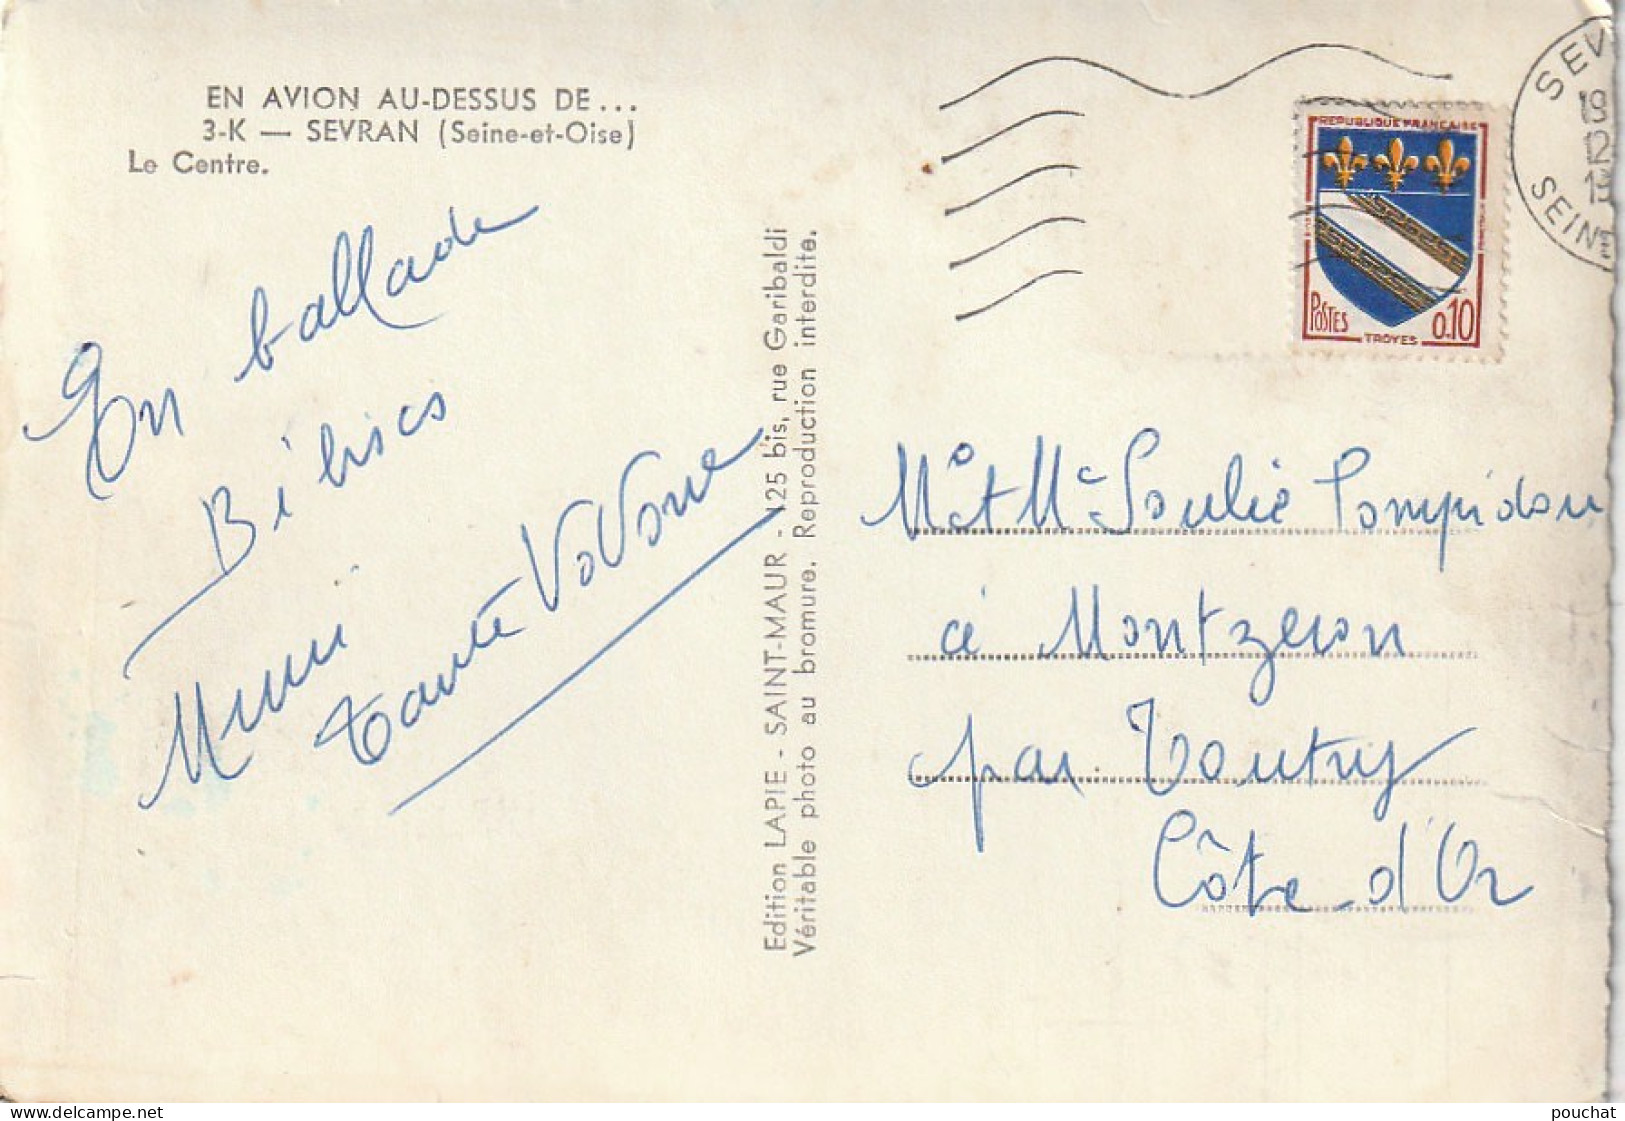 EN AVION AU-DESSUS DE...
3-K — SEVRAN (Seine-et-Oise)
Le Centre.
En ballade
Mimi
Tante VoVonne
Edition LAPIE - SAINT-MAUR - 125 bis, rue Garibaldi
Véritable photo au bromure. Reproduction interdite.
SEV
19
12
SEINE
REPUBLIQUE FRANÇAISE
POSTES
0.10
TROYES
Mr et Me Soulié Pompidou
à Montzeron
par Toutry
Côte d'Or
delcampe.net
pouchat